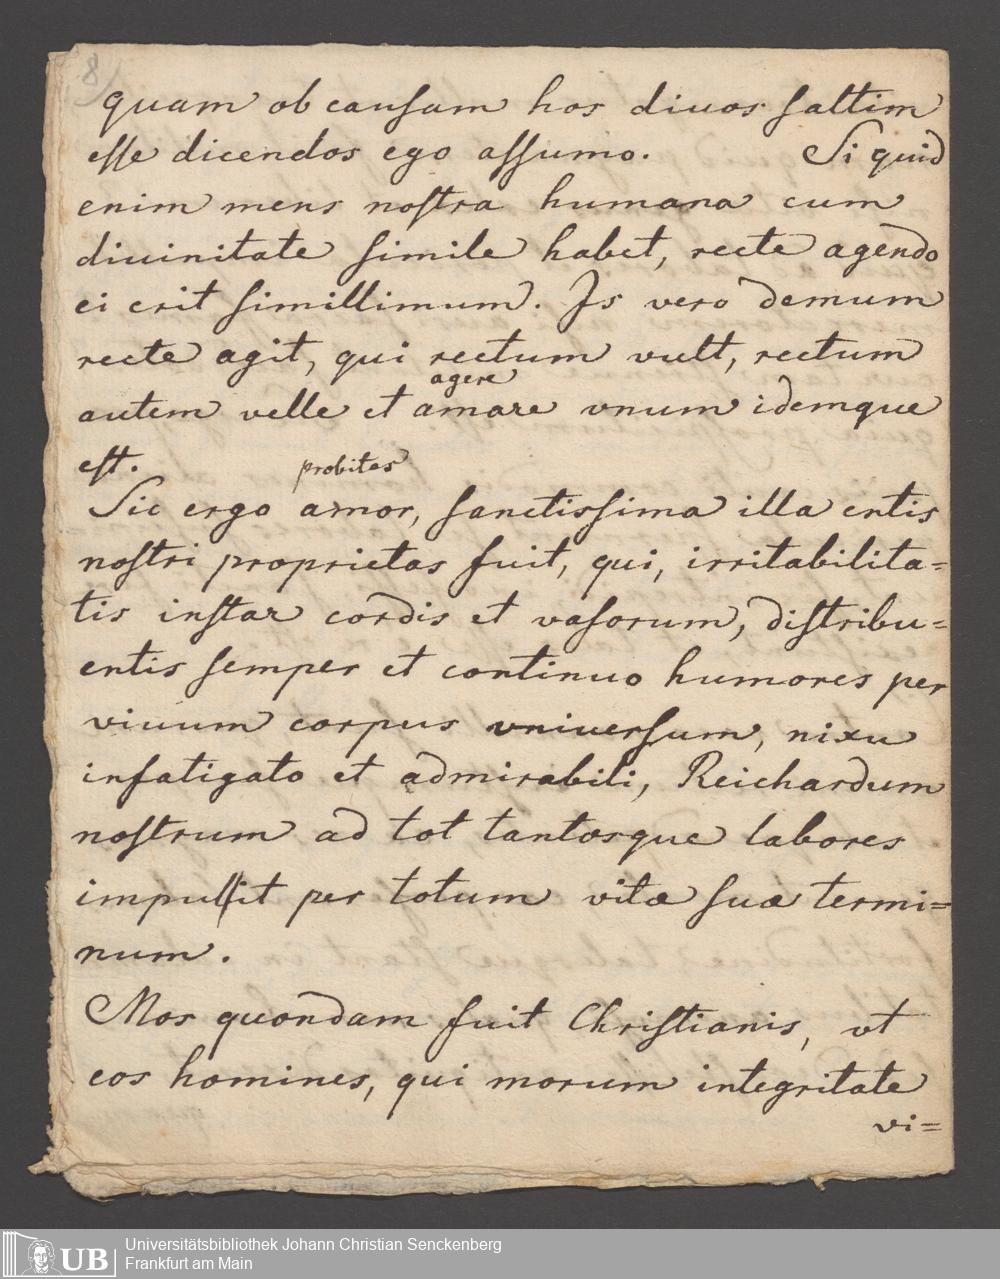 8)
quam ob causam hos diuos saltim
esse dicendos ego assumo. Si quid
enim mens nostra humana cum
diuinitate simile habet, recte agendo
ei erit simillimum. Is vero demum
recte agit, qui rectum vult, rectum
agere
autem velle et amare vnum idemque
est.
probitas
Sic ergo amor, sanctissima illa entis
nostri proprietas fuit, qui, irritabilita=
tis instar cordis et vasorum, distribu=
entis semper et continuo humores per
viuum corpus vniuersum, nixu
infatigato et admirabili, Reichardum
nostrum ad tot tantosque labores
impulit per totum vitæ suæ termi=
num.
Mos quondam fuit Christianis, vt
eos homines, qui morum integritate
vi=
UB
Universitätsbibliothek Johann Christian Senckenberg
Frankfurt am Main